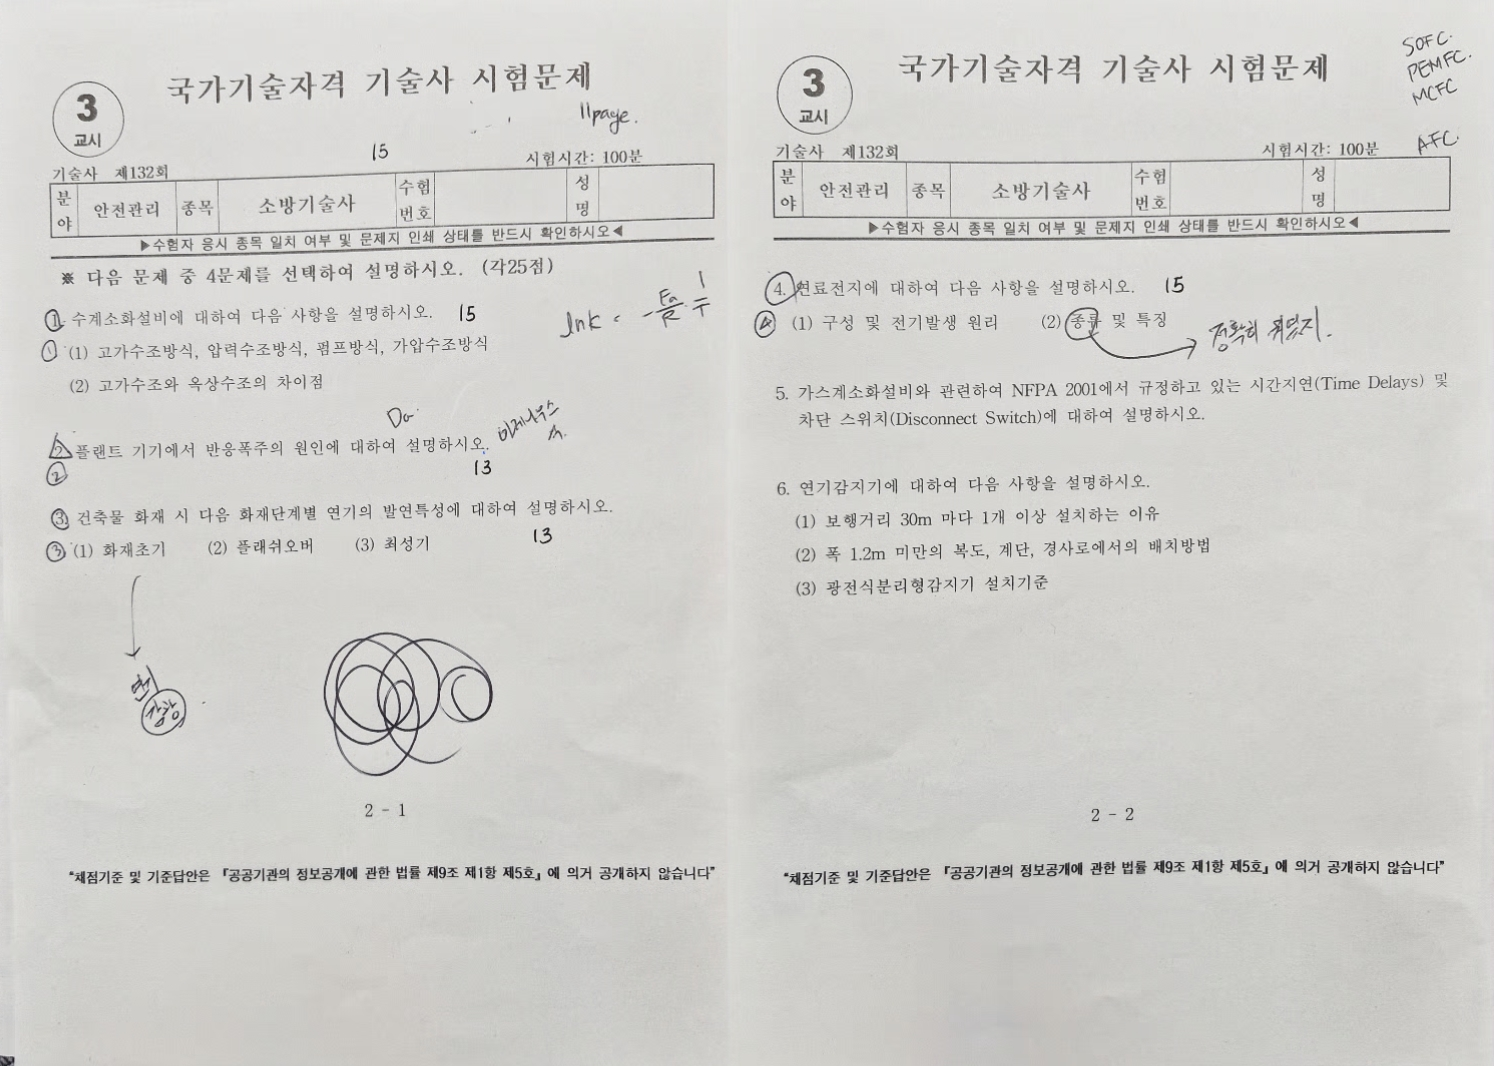 국가기술자격 기술사 시험문제
3
교시
11page.
15
기술사 제132회
시험시간: 100분
분야 안전관리 종목 소방기술사 수험번호 성명
▶수험자 응시 종목 일치 여부 및 문제지 인쇄 상태를 반드시 확인하시오◀
※ 다음 문제 중 4문제를 선택하여 설명하시오. (각25점)
1. 수계소화설비에 대하여 다음 사항을 설명하시오. 15
lnk = -Ea/R 1/T
① (1) 고가수조방식, 압력수조방식, 펌프방식, 가압수조방식
(2) 고가수조와 옥상수조의 차이점
Da
2. 플랜트 기기에서 반응폭주의 원인에 대하여 설명하시오.
② 13
3. 건축물 화재 시 다음 화재단계별 연기의 발연특성에 대하여 설명하시오.
③ (1) 화재초기 (2) 플래쉬오버 (3) 최성기 13
2 - 1
"채점기준 및 기준답안은 「공공기관의 정보공개에 관한 법률 제9조 제1항 제5호」에 의거 공개하지 않습니다"
SOFC.
PEMFC.
MCFC
AFC.
국가기술자격 기술사 시험문제
3
교시
기술사 제132회
시험시간: 100분
분야 안전관리 종목 소방기술사 수험번호 성명
▶수험자 응시 종목 일치 여부 및 문제지 인쇄 상태를 반드시 확인하시오◀
4. 연료전지에 대하여 다음 사항을 설명하시오. 15
④ (1) 구성 및 전기발생 원리 (2) 종류 및 특징
정확히
5. 가스계소화설비와 관련하여 NFPA 2001에서 규정하고 있는 시간지연(Time Delays) 및
차단 스위치(Disconnect Switch)에 대하여 설명하시오.
6. 연기감지기에 대하여 다음 사항을 설명하시오.
(1) 보행거리 30m 마다 1개 이상 설치하는 이유
(2) 폭 1.2m 미만의 복도, 계단, 경사로에서의 배치방법
(3) 광전식분리형감지기 설치기준
2 - 2
"채점기준 및 기준답안은 「공공기관의 정보공개에 관한 법률 제9조 제1항 제5호」에 의거 공개하지 않습니다"